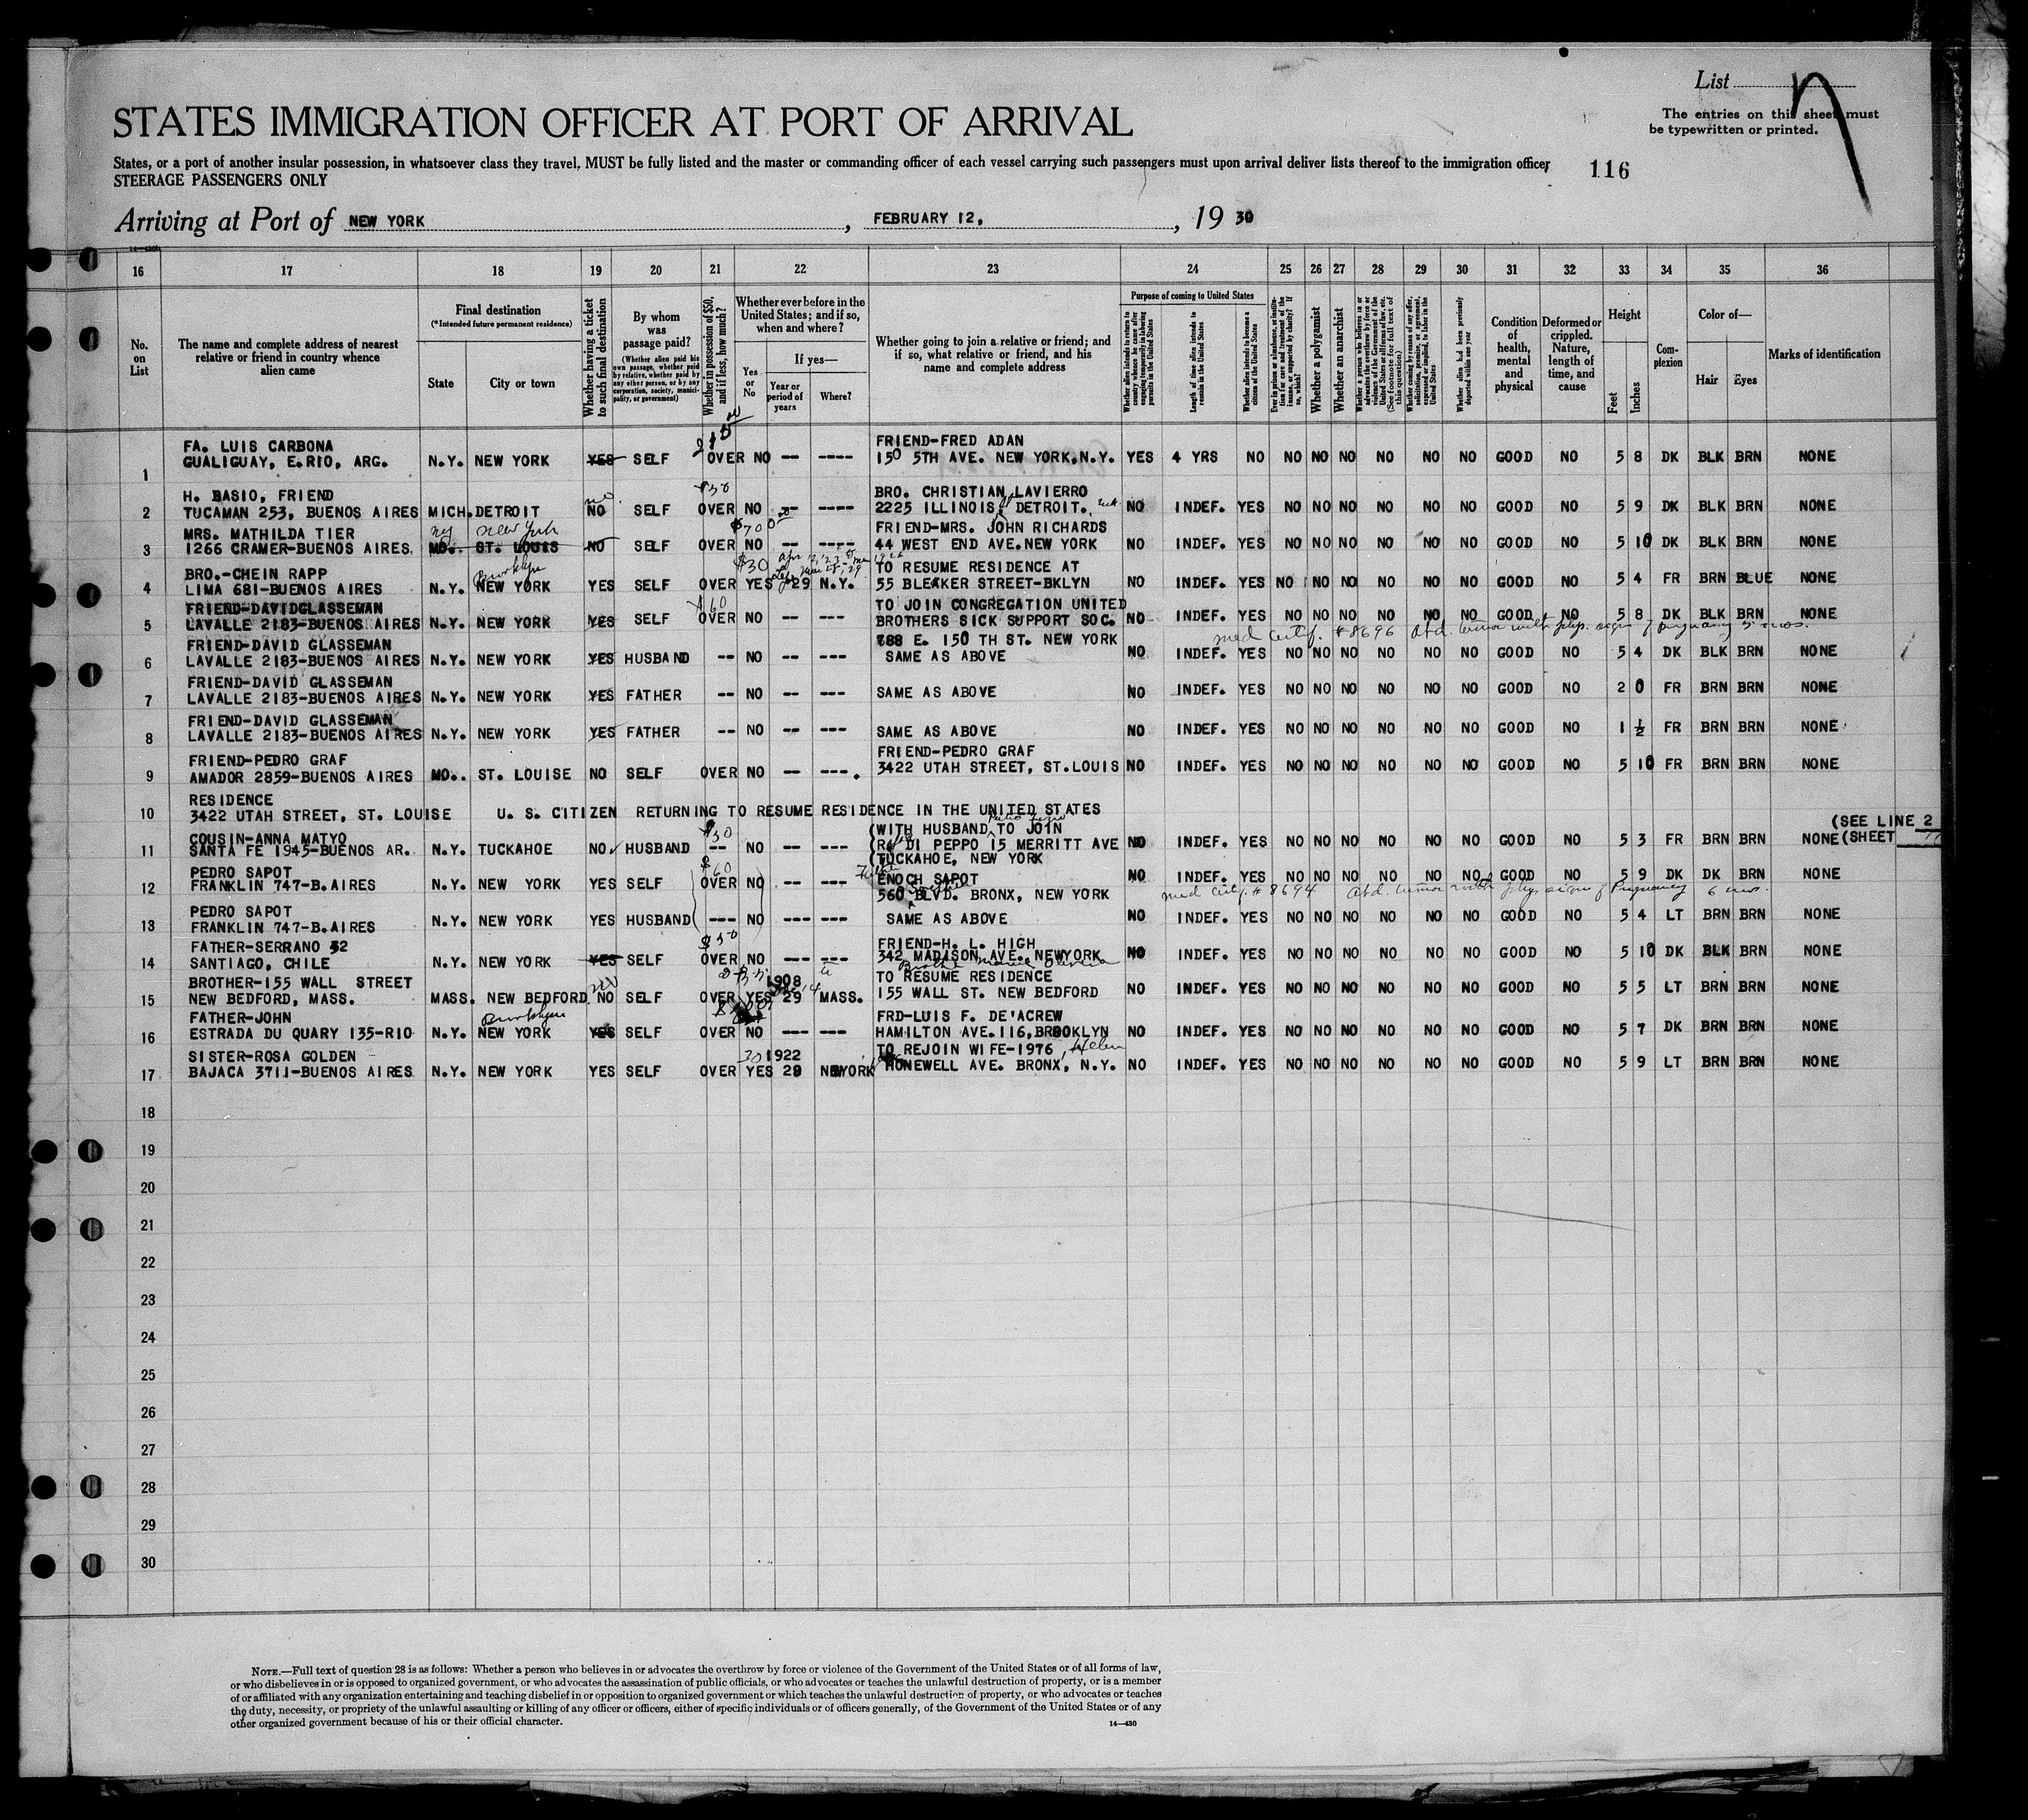 List
The entries on this sheet must
be typewritten or printed.
STATES IMMIGRATION OFFICER AT PORT OF ARRIVAL
States, or a port of another insular possession, in whatsoever class they travel, MUST be fully listed and the master or commanding officer of each vessel carrying such passengers must upon arrival deliver lists thereof to the immigration officer
116
STEERAGE PASSENGERS ONLY
Arriving at Port of NEW YORK, FEBRUARY 12, 1930
16 17 18 19 20 21 22 23 24 25 26 27 28 29 30 31 32 33 34 35 36
No. on List
The name and complete address of nearest relative or friend in country whence alien came
Final destination
(*Intended future permanent residence)
State
City or town
Whether having a ticket to such final destination
By whom was passage paid?
(Whether alien paid his own passage, whether paid by relative, whether paid by any other person, or by any corporation, society, municipality, or government)
Whether in possession of $50, and if less, how much?
Whether ever before in the United States; and if so, when and where?
Yes or No
If yes—
Year or period of years
Where?
Whether going to join a relative or friend; and if so, what relative or friend, and his name and complete address
Purpose of coming to United States
Whether alien intends to return to country whence he came after engaging temporarily in laboring pursuits in the United States
Length of time alien intends to remain in the United States
Whether alien intends to become a citizen of the United States
Ever in prison or almshouse, or institution for care and treatment of the insane, or supported by charity? If so, which?
Whether a polygamist
Whether an anarchist
Whether a person who believes in or advocates the overthrow by force or violence of the Government of the United States or all forms of law, etc. (See footnote for full text of this question)
Whether coming by reason of any offer, solicitation, promise, or agreement, expressed or implied, to labor in the United States
Whether alien had been previously deported within one year
Condition of health, mental and physical
Deformed or crippled. Nature, length of time, and cause
Height
Feet
Inches
Complexion
Color of—
Hair
Eyes
Marks of identification
FA. LUIS CARBONA FRIEND-FRED ADAN
1 GUALIGUAY, E.RIO, ARG. N.Y. NEW YORK YES SELF OVER NO -- ---- 150 5TH AVE. NEW YORK,N.Y. YES 4 YRS NO NO NO NO NO NO NO GOOD NO 5 8 DK BLK BRN NONE
H. BASIO, FRIEND no $50 BRO. CHRISTIAN LAVIERRO
2 TUCAMAN 253, BUENOS AIRES MICH. DETROIT NO SELF OVER NO -- ---- 2225 ILLINOIS, DETROIT. NO INDEF. YES NO NO NO NO NO NO GOOD NO 5 9 DK BLK BRN NONE
MRS. MATHILDA TIER ny new york $700 FRIEND-MRS. JOHN RICHARDS
3 1266 CRAMER-BUENOS AIRES MO.. ST. LOUIS NO SELF OVER NO -- ---- 44 WEST END AVE.NEW YORK NO INDEF. YES NO NO NO NO NO NO GOOD NO 5 10 DK BLK BRN NONE
BRO.-CHEIN RAPP Brooklyn $30 TO RESUME RESIDENCE AT
4 LIMA 681-BUENOS AIRES N.Y. NEW YORK YES SELF OVER YES 29 N.Y. 55 BLEAKER STREET-BKLYN NO INDEF. YES NO NO NO NO NO NO GOOD NO 5 4 FR BRN BLUE NONE
FRIEND-DAVIDGLASSEMAN $60 TO JOIN CONGREGATION UNITED
5 LAVALLE 2183-BUENOS AIRES N.Y. NEW YORK YES SELF OVER NO -- --- BROTHERS SICK SUPPORT SOC. NO INDEF. YES NO NO NO NO NO NO GOOD NO 5 8 DK BLK BRN NONE
FRIEND-DAVID GLASSEMAN 788 E. 150 TH ST. NEW YORK med certif. #8696 abd. tumor with phys. signs of pregnancy 5 mos.
6 LAVALLE 2183-BUENOS AIRES N.Y. NEW YORK YES HUSBAND -- NO -- --- SAME AS ABOVE NO INDEF. YES NO NO NO NO NO NO GOOD NO 5 4 DK BLK BRN NONE
FRIEND-DAVID GLASSEMAN
7 LAVALLE 2183-BUENOS AIRES N.Y. NEW YORK YES FATHER -- NO -- --- SAME AS ABOVE NO INDEF. YES NO NO NO NO NO NO GOOD NO 2 0 FR BRN BRN NONE
FRIEND-DAVID GLASSEMAN
8 LAVALLE 2183-BUENOS AIRES N.Y. NEW YORK YES FATHER -- NO -- --- SAME AS ABOVE NO INDEF. YES NO NO NO NO NO NO GOOD NO 1 ½ FR BRN BRN NONE
FRIEND-PEDRO GRAF FRIEND-PEDRO GRAF
9 AMADOR 2859-BUENOS AIRES MO.. ST. LOUISE NO SELF OVER NO -- ---. 3422 UTAH STREET, ST.LOUIS NO INDEF. YES NO NO NO NO NO NO GOOD NO 5 10 FR BRN BRN NONE
RESIDENCE
10 3422 UTAH STREET, ST. LOUISE U. S. CITIZEN RETURNING TO RESUME RESIDENCE IN THE UNITED STATES
COUSIN-ANNA MATYO $50 (WITH HUSBAND TO JOIN (SEE LINE 2
11 SANTA FE 1945-BUENOS AR. N.Y. TUCKAHOE NO HUSBAND -- NO -- --- DI PEPPO 15 MERRITT AVE NO INDEF. YES NO NO NO NO NO NO GOOD NO 5 3 FR BRN BRN NONE (SHEET
(TUCKAHOE, NEW YORK
PEDRO SAPOT $60 ENOCH SAPOT
12 FRANKLIN 747-B.AIRES N.Y. NEW YORK YES SELF OVER NO -- --- 560 BLVD. BRONX, NEW YORK NO INDEF. YES NO NO NO NO NO NO GOOD NO 5 9 DK DK BRN NONE
PEDRO SAPOT med certif. #8694 abd. tumor with phys signs of Pregnancy 6 mos.
13 FRANKLIN 747-B.AIRES N.Y. NEW YORK YES HUSBAND --- NO --- --- SAME AS ABOVE NO INDEF. YES NO NO NO NO NO NO GOOD NO 5 4 LT BRN BRN NONE
FATHER-SERRANO 32 $50 FRIEND-H. L. HIGH
14 SANTIAGO, CHILE N.Y. NEW YORK YES SELF OVER NO --- --- 342 MADISON AVE. NEWYORK NO INDEF. YES NO NO NO NO NO NO GOOD NO 5 10 DK BLK BRN NONE
BROTHER-155 WALL STREET 1908 TO RESUME RESIDENCE
15 NEW BEDFORD, MASS. MASS. NEW BEDFORD NO SELF OVER YES 29 MASS. 155 WALL ST. NEW BEDFORD NO INDEF. YES NO NO NO NO NO NO GOOD NO 5 5 LT BRN BRN NONE
FATHER-JOHN Brooklyn FRD-LUIS F. DE'ACREW
16 ESTRADA DU QUARY 135-RIO N.Y. NEW YORK YES SELF OVER NO --- --- HAMILTON AVE.116,BROOKLYN NO INDEF. YES NO NO NO NO NO NO GOOD NO 5 7 DK BRN BRN NONE
SISTER-ROSA GOLDEN 1922 TO REJOIN WIFE-1976 Helen
17 BAJACA 3711-BUENOS AIRES N.Y. NEW YORK YES SELF OVER YES 29 NEWYORK HONEWELL AVE. BRONX, N.Y. NO INDEF. YES NO NO NO NO NO NO GOOD NO 5 9 LT BRN BRN NONE
18
19
20
21
22
23
24
25
26
27
28
29
30
NOTE.—Full text of question 28 is as follows: Whether a person who believes in or advocates the overthrow by force or violence of the Government of the United States or of all forms of law,
or who disbelieves in or is opposed to organized government, or who advocates the assassination of public officials, or who advocates or teaches the unlawful destruction of property, or is a member
of or affiliated with any organization entertaining and teaching disbelief in or opposition to organized government or which teaches the unlawful destruction of property, or who advocates or teaches
the duty, necessity, or propriety of the unlawful assaulting or killing of any officer or officers, either of specific individuals or of officers generally, of the Government of the United States or of any
other organized government because of his or their official character.
14—430